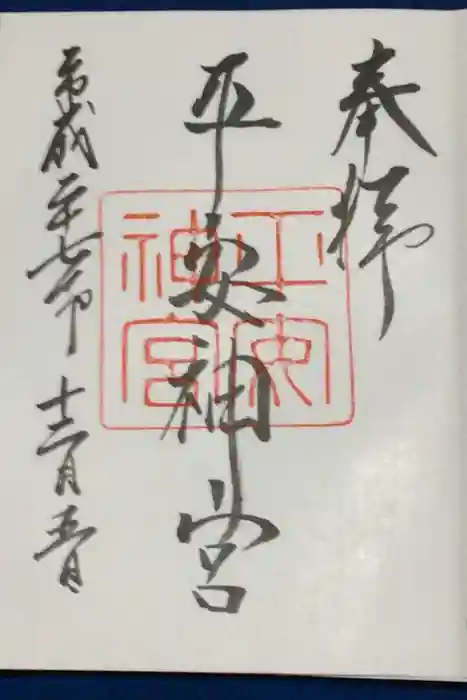 奉拝
平安神宮
平安神宮
平成二十七年 十二月五日